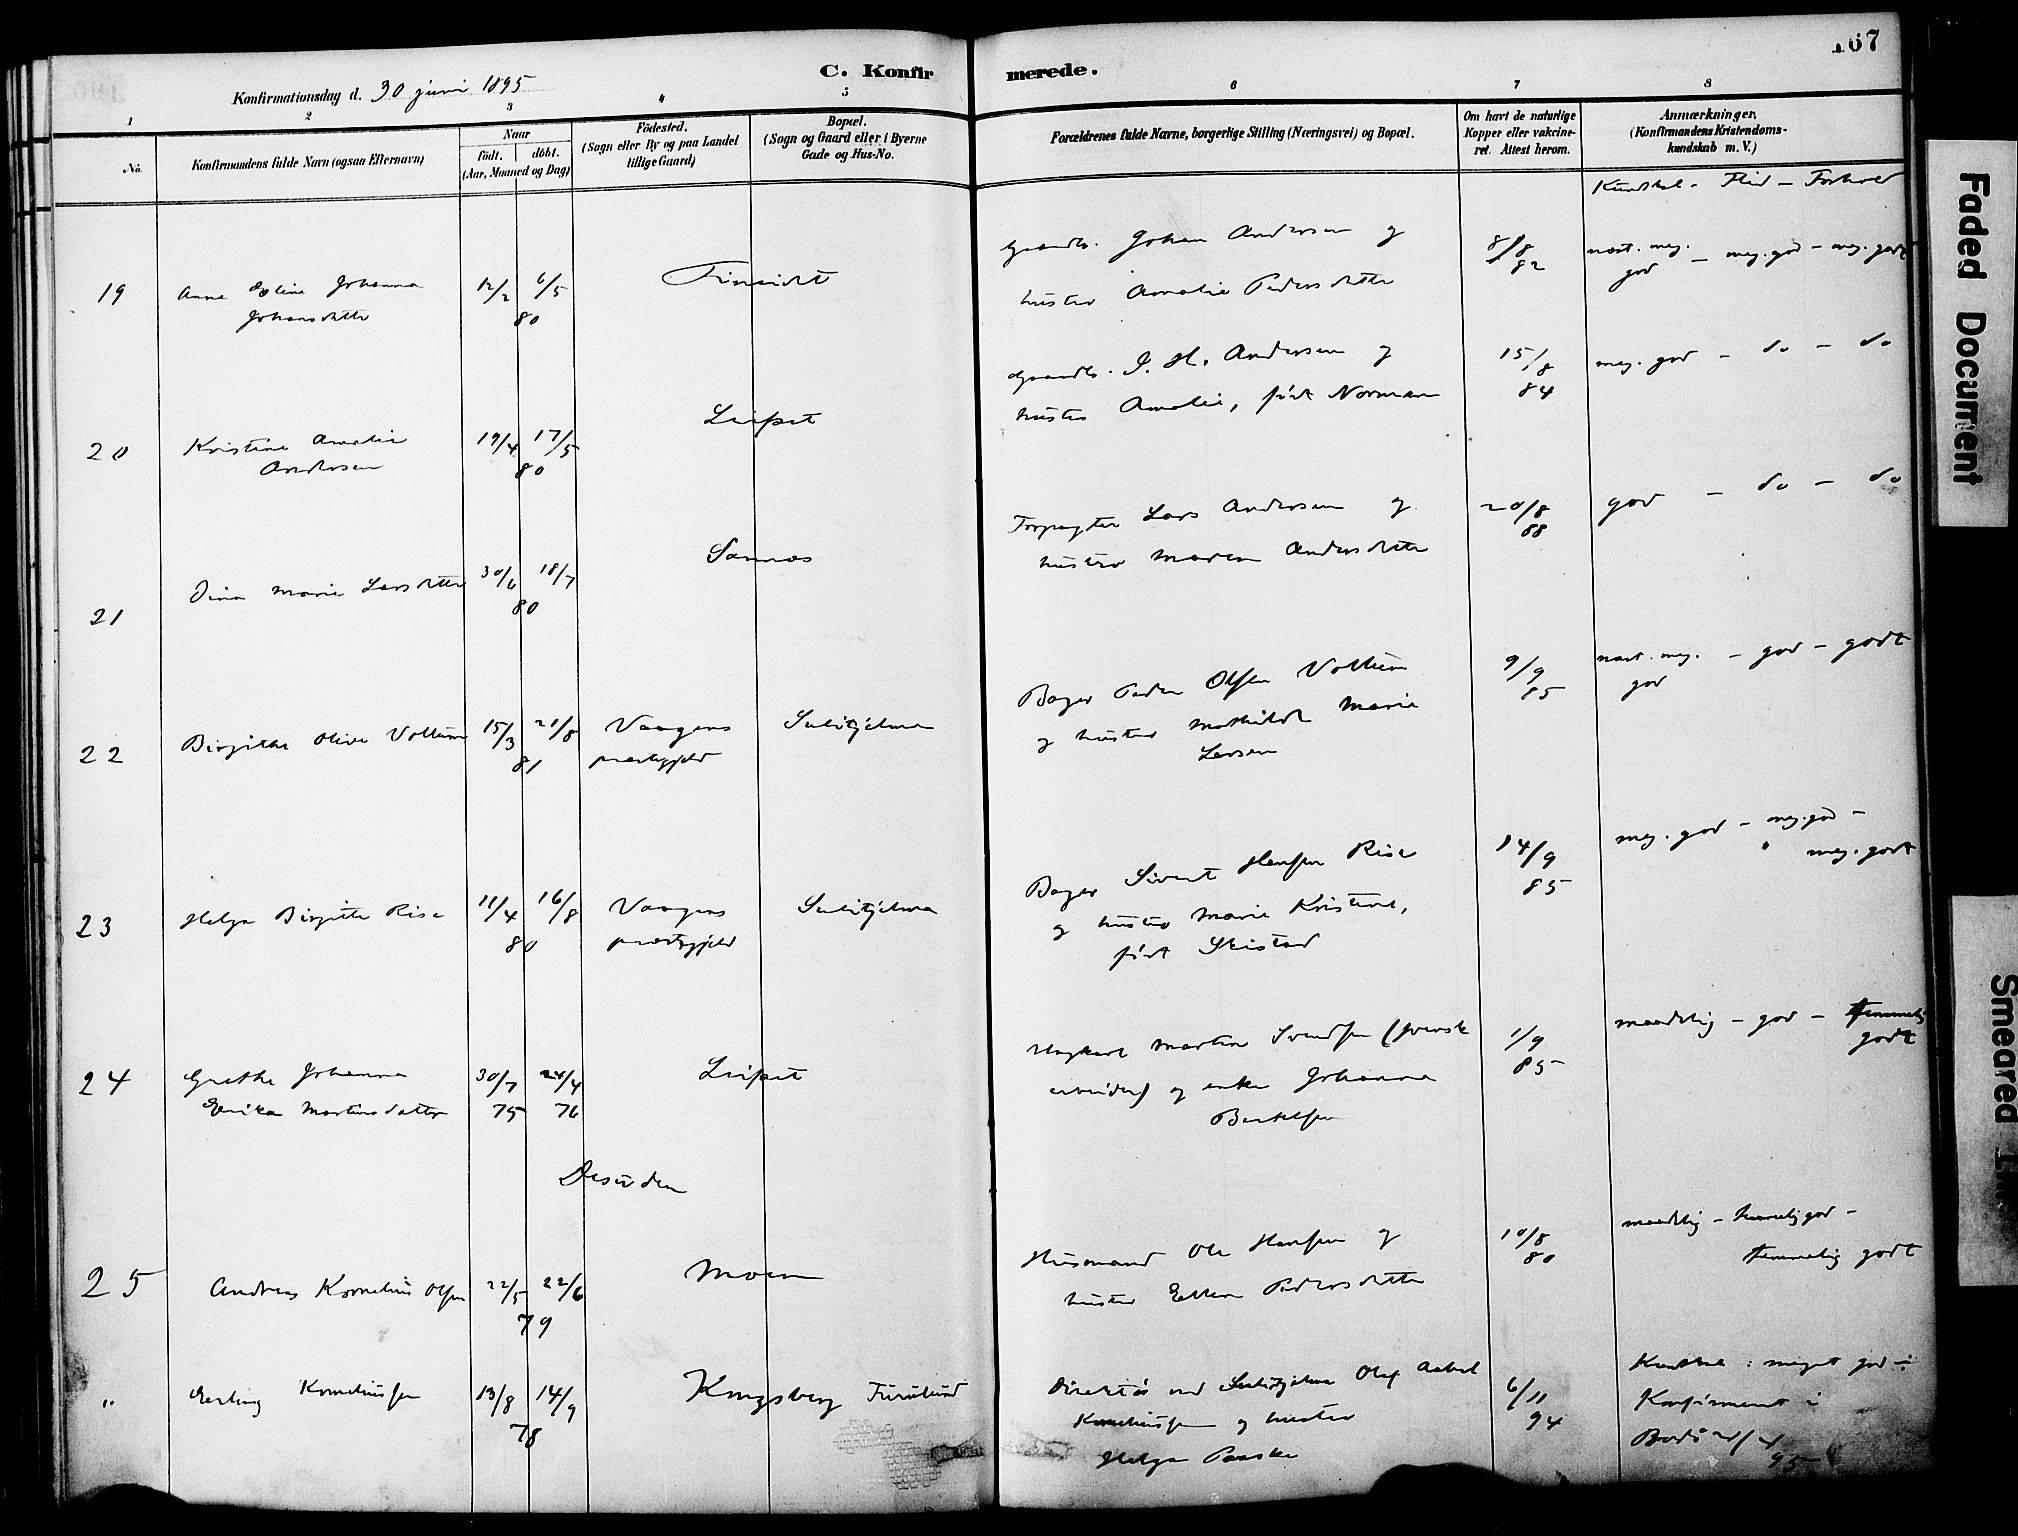 167
C. Konfirmerede.
Konfirmationsdag d. 30 juni 1895
1 2 3 4 5 6 7 8
No.
Konfirmandens fulde Navn (ogsaa Efternavn)
Naar
födt. döbt.
(Aar, Maaned og Dag)
Födested.
(Sogn eller By og paa Landet
tillige Gaard)
Bopæl.
(Sogn og Gaard eller i Byerne
Gade og Hus-No.
Forældrenes fulde Navne, borgerlige Stilling (Næringsvei) og Bopæl.
Om havt de naturlige
Kopper eller vakcine-
ret. Attest herom.
Anmærkninger.
(Konfirmandens Kristendoms-
kundskab m. V.)
Kundskab - Flid - Forhold
19 Anna Eline Johanna
Johansdatter
12/2 6/5
80
Finneidet
Gaardb. Johan Andersen og
hustru Amalie Pedersdatter
8/8
82
næst. meg.
god - meg. god - meg. godt
20 Kristine Amalie
Andersen
19/4 17/5
80
Leifset
Gaardb. J. H. Andersen og
hustru Amalie, født Norman
15/8
84
meg. god - do - do
21 Dina Marie Larsdatter
30/6 18/7
80
Sannes
Forpagter Lars Andersen og
hustru Maren Andersdatter
20/8
88
god - do - do
22 Birgithe Olive Vollum
15/3 21/8
81
Vaagens
præstegjeld
Sulitjelma
Bager Peder Olsen Vollum
og hustru Mathilde Marie
Larsen
9/9
85
næst. meg. - god - godt
god
23 Helga Birgitte Rise
11/4 16/8
80
Vaagens
præstegjeld
Sulitjelma
Bager Sivert Hansen Rise
og hustru Marie Kristine,
født Skistad
14/9
85
meg. god - meg. god -
meg. godt
24 Grethe Johanna
Erika Martinsdatter
30/7 24/4
75 76
Leifset
Ungkarl Martin Svendsen (svensk
arbeider) og enke Johanna
Bertelsen
1/9
85
maadelig - god - temmelig
godt
Desuden
25 Andreas Kornelius Olsen
22/5 22/6
79
Moen
Husmand Ole Hansen og
hustru Ellen Pedersdatter
10/8
80
maadelig - temmelig god -
temmelig godt
" Erling Korneliussen
13/8 14/9
78
Kongsberg Furulund
Direktør ved Sulitjelma Olaf Aabel
Korneliussen og hustru
Helga Paaske
6/11
94
Kundskab: meget god -
Konfirmeret i
Bodø
95
Faded Document
Smeared